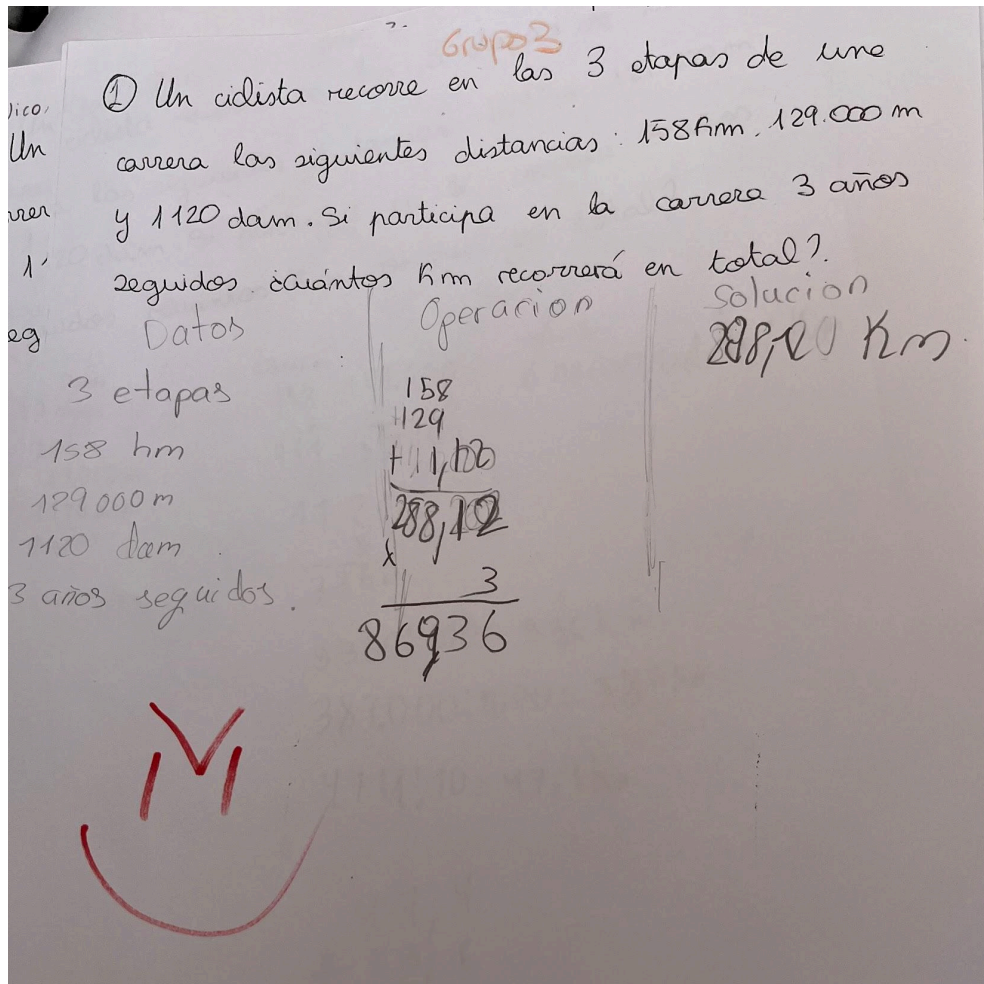 Grupo 3
① Un ciclista recorre en las 3 etapas de une
carrera las siguientes distancias: 158 hm, 129.000 m
y 1120 dam. Si participa en la carrera 3 años
seguidos ¿cuántos Km recorrerá en total?.
Jico,
Un
rrer
1'
eg
Datos
3 etapas
158 hm
129000 m
1120 dam
3 años seguidos.
Operacion
158
+129
+11,120
288,12
x
3
869,36
Solucion
288,120 Km.